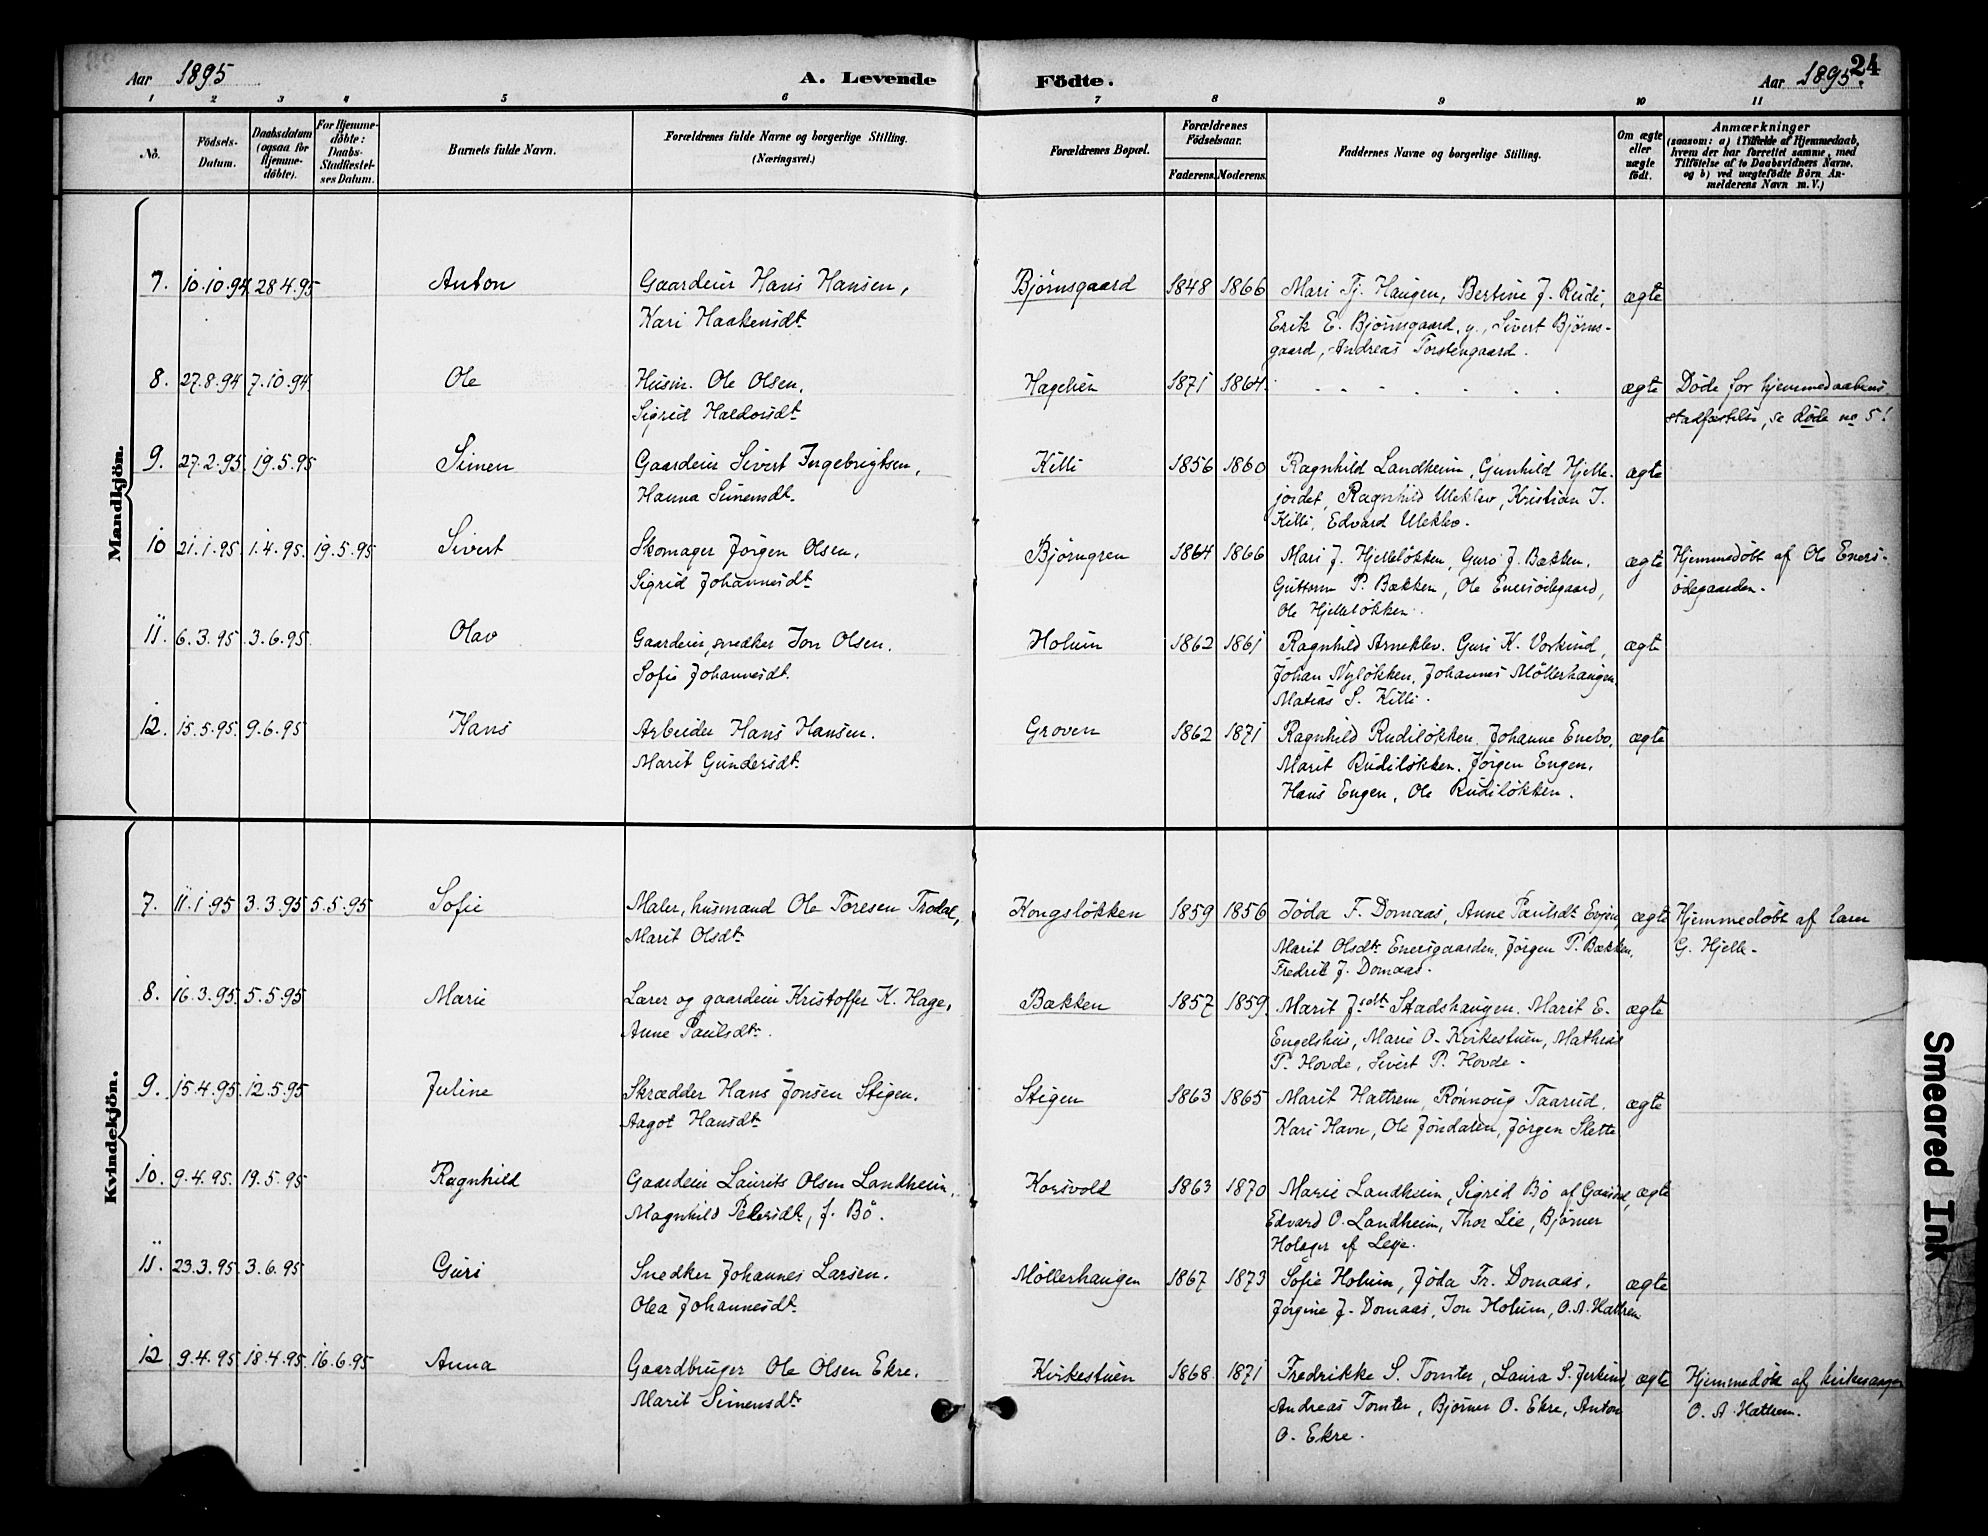 Aar 1895 A. Levende Födte. Aar 1895. 24
1 2 3 4 5 6 7 8 9 10 11
No. Födsels-Datum. Daabsdatum (ogsaa for Hjemme-döbte). For Hjemme-döbte: Daabs-Stadfæstel-ses Datum. Barnets fulde Navn. Forældrenes fulde Navne og borgerlige Stilling. (Næringsvei.) Forældrenes Bopæl. Forældrenes Födselsaar. Faderens. Moderens. Faddernes Navne og borgerlige Stilling. Om ægte eller uægte födt. Anmærkninger (saasom: a) i Tilfælde af Hjemmedaab, hvem der har forrettet samme, med Tilföielse af to Daabsvidners Navne, og b) ved uægtefödte Börn An-melderens Navn m. V.)
Mandkjön.
7. 10.10.94 28.4.95 Anton Gaardeier Hans Hansen, Bjørnsgaard 1848 1866 Mari Tj. Haugen, Bertine J. Rudi, ægte
Kari Haakensdt. Erik E. Bjørnsgaard, y., Sivert Bjørns-
gaard, Andreas Torstengaard.
8. 27.8.94 7.10.94 Ole Husm. Ole Olsen, Hagelien 1871 1864 . . . . . . ægte Døde før hjemmedaabens
Sigrid Haldorsdt. stadfæstelse, se døde no 5!
9. 27.2.95. 19.5.95 Simen Gaardeier Sivert Ingebrigtsen, Killi 1856 1860 Ragnhild Landheim, Gunhild Hjelle- ægte
Hanna Simensdt. jordet, Ragnhild Uleklev, Kristian I.
Killi, Edvard Uleklev.
10 21.1.95. 1.4.95. 19.5.95 Sivert Skomager Jørgen Olsen, Bjørngren 1864 1866 Mari J. Hjelleløkken, Guro J. Bækken, ægte Hjemmedøbt af Ole Eners-
Sigrid Johannesdt. Guttorm P. Bækken, Ole Enersødegaard, ødegaarden.
Ole Hjelleløkken.
11. 6.3.95. 3.6.95. Olav Gaardeier, snedker Jon Olsen. Holum 1862 1861 Ragnhild Arneklev. Guri K. Vorkind, ægte
Sofie Johannesdt. Johan Nyløkken, Johannes Möllerhaugen,
Matias S. Killi.
12. 15.5.95. 9.6.95 Hans Arbeider Hans Hansen. Groven 1862 1871 Ragnhild Rudiløkken. Johanne Enebo, ægte
Marit Gundersdt. Marit Rudiløkken. Jørgen Engen,
Hans Engen, Ole Rudiløkken.
Kvindekjön.
7. 11.1.95 3.3.95 5.5.95 Sofie Maler, husmand Ole Toresen Trodal, Kongsløkken 1859 1856 Jøda F. Domaas, Anne Paulsdt. Evjen, ægte Hjemmedøbt af lærer
Marit Olsdt. Marit Olsdt. Enersgaarden, Jørgen P. Bækken, G. Hjelle.
Fredrik J. Domaas.
8. 16.3.95. 5.5.95 Marie Lærer og gaardeier Kristoffer K. Hage, Bækken 1857 1859 Marit Jsdt. Stadshaugen. Marit E. ægte
Anne Paulsdt. Engelshus, Marie O. Kirkestuen, Mathias
P. Hovde, Sivert P. Hovde.
9. 15.4.95. 12.5.95 Juline Skrædder Hans Jonsen Stigen. Stigen 1863 1865 Marit Hattrem, Rønnoug Taarud. ægte
Aagot Hansdt. Kari Havn, Ole Jøndalen, Jørgen Slette
10. 9.4.95. 19.5.95 Ragnhild Gaardeier Laurits Olsen Landheim, Korsvold 1863 1870 Marie Landheim, Sigrid Bø af Gausdal, ægte
Magnhild Petersdt., f. Bö. Edvard O. Landheim, Thor Lie, Bjørner
Holager af Lesje.
11. 23.3.95. 3.6.95 Guri Snedker Johannes Larsen. Möllerhaugen 1867 1873 Sofie Holum, Jøda Fr. Domaas. ægte
Olea Johannesdt. Jørgine J. Domaas, Jon Holum, O. A. Hattrem
12 9.4.95. 18.4.95. 16.6.95 Anna Gaardbruger Ole Olsen Ekre. Kirkestuen 1868 1871 Fredrikke S. Tomter, Laura S. Jerkind, ægte Hjemmedøbt af kirkesanger
Marit Simensdt. Andreas Tomter, Bjørner O. Ekre, Anton O. A. Hattrem.
O. Ekre.
Smeared Ink